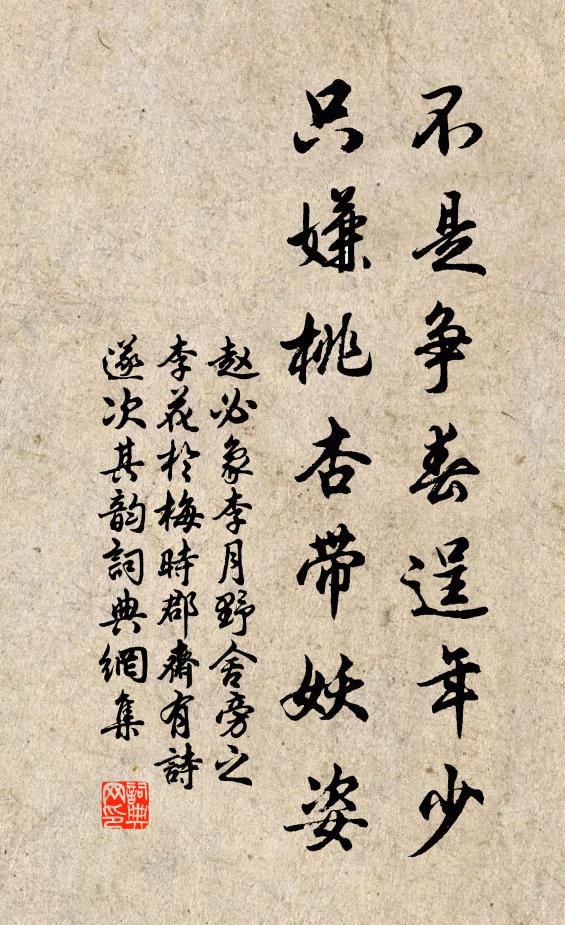 不是争春逞年少
只嫌桃杏带妖姿
赵必象李月野舍旁之
李花於梅時郡齋有詩
遂次其韵詞典網集
詞典网印